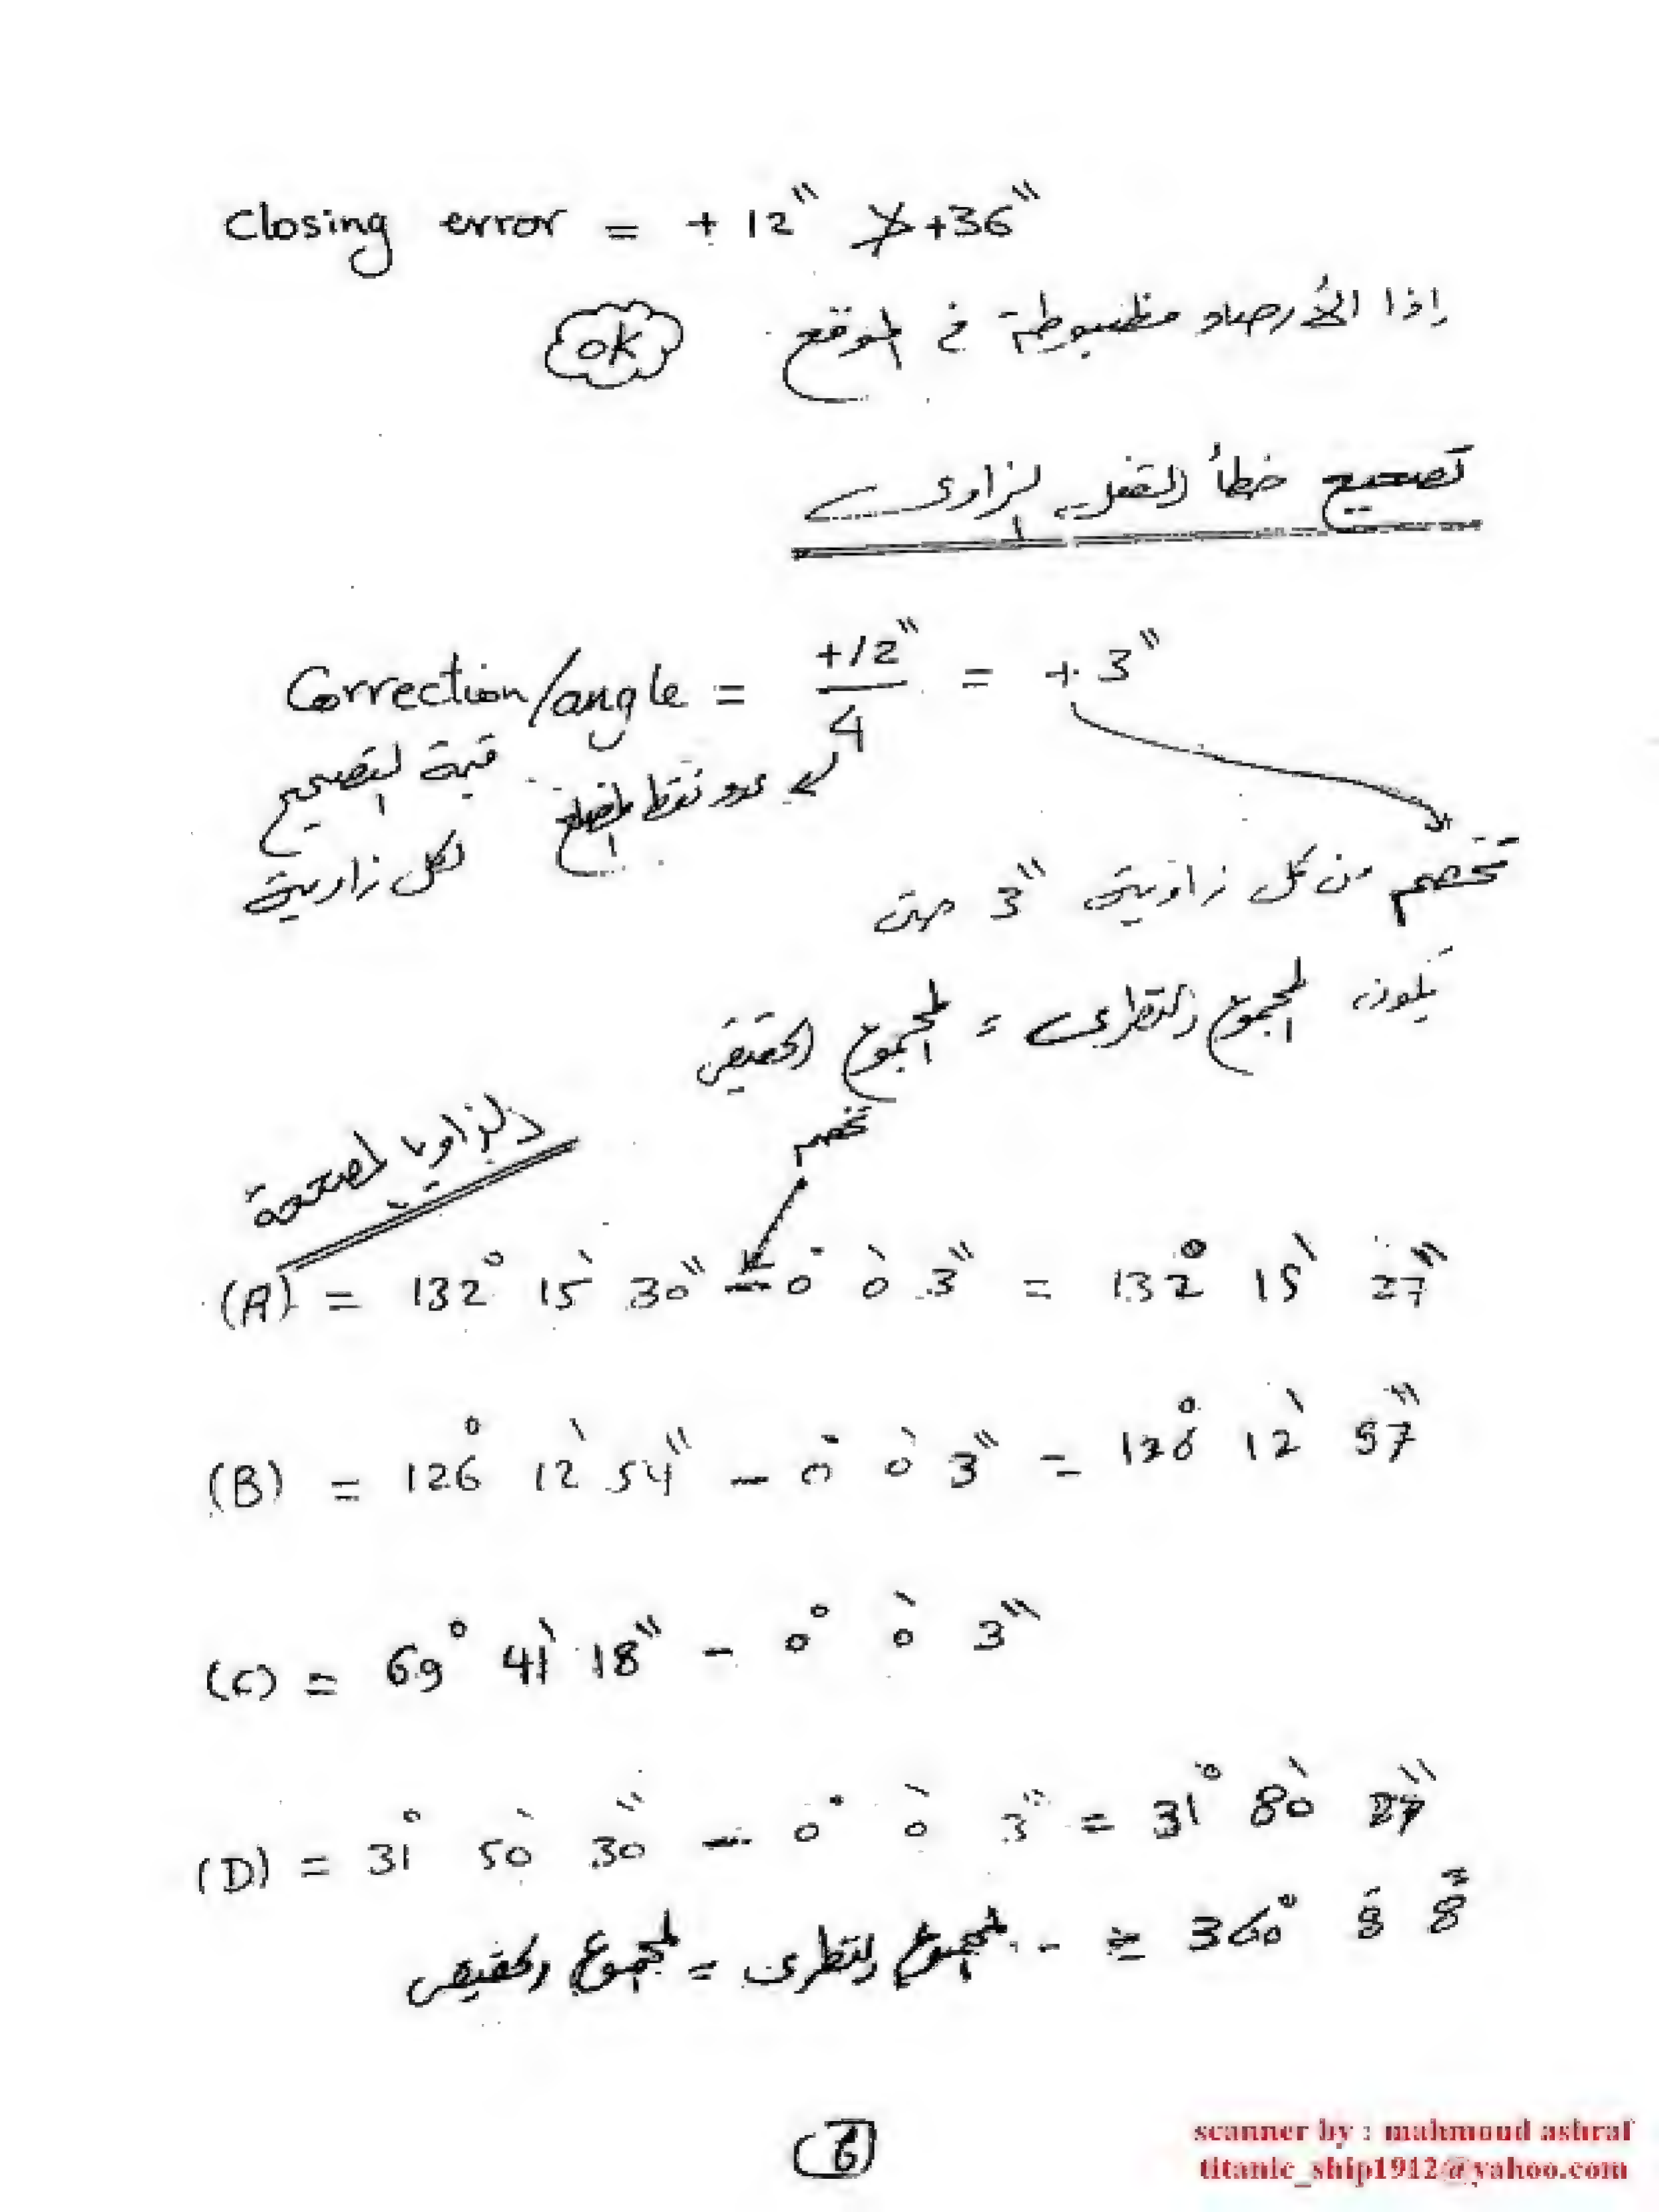 Closing error = + 12" ≯ +36"
إذا الأرصاد مظبوطة في الموقع ok
تصحيح خطأ القفل الزاوى
Correction/angle = +12"/4 = + 3"
قيمة التصحيح لكل زاوية
عدد نقط المضلع
تخصم من كل زاوية 3" حتى
يكون المجموع النظرى = المجموع الحقيقى
الزوايا المصححة
تخصم
(A) = 132° 15' 30" - 0° 0' 3" = 132° 15' 27"
(B) = 126° 12' 54" - 0° 0' 3" = 126° 12' 57"
(C) = 69° 41' 18" - 0° 0' 3"
(D) = 31° 50' 30" - 0° 0' 3" = 31° 80' 27"
المجموع النظرى = المجموع الحقيقى = 360°
6
scanner by : mahmoud ashraf
titanic_ship1912@yahoo.com